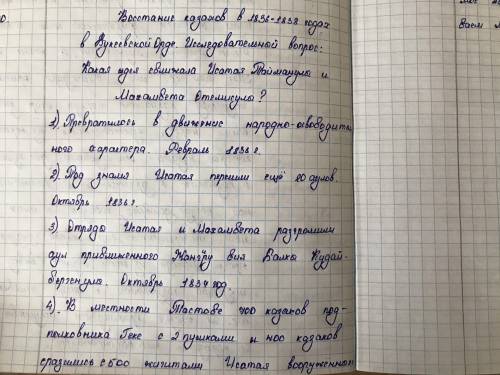 Восстание казахов в 1836-1838 годах
в Букеевской Орде. Исследовательной вопрос:
Какая идея сближала Исатая Тайманулы и
Махамбета Отемисулы?
1). Превратилось в движение народно-освободитель
ного характера. Февраль 1836 г.
2). Под знамя Исатая перешли ещё 20 аулов.
Октябрь 1836 г.
3) Отряды Исатая и Махамбета разгромили
аул приближенного Жангiру бия Балки Кудай-
бергенула. Октябрь 1837 год.
4). В местности Тастобе 400 казаков под-
полковника Геке с 2 пушками и 400 казахов
сразились с 500 жигитами Исатая вооруженного